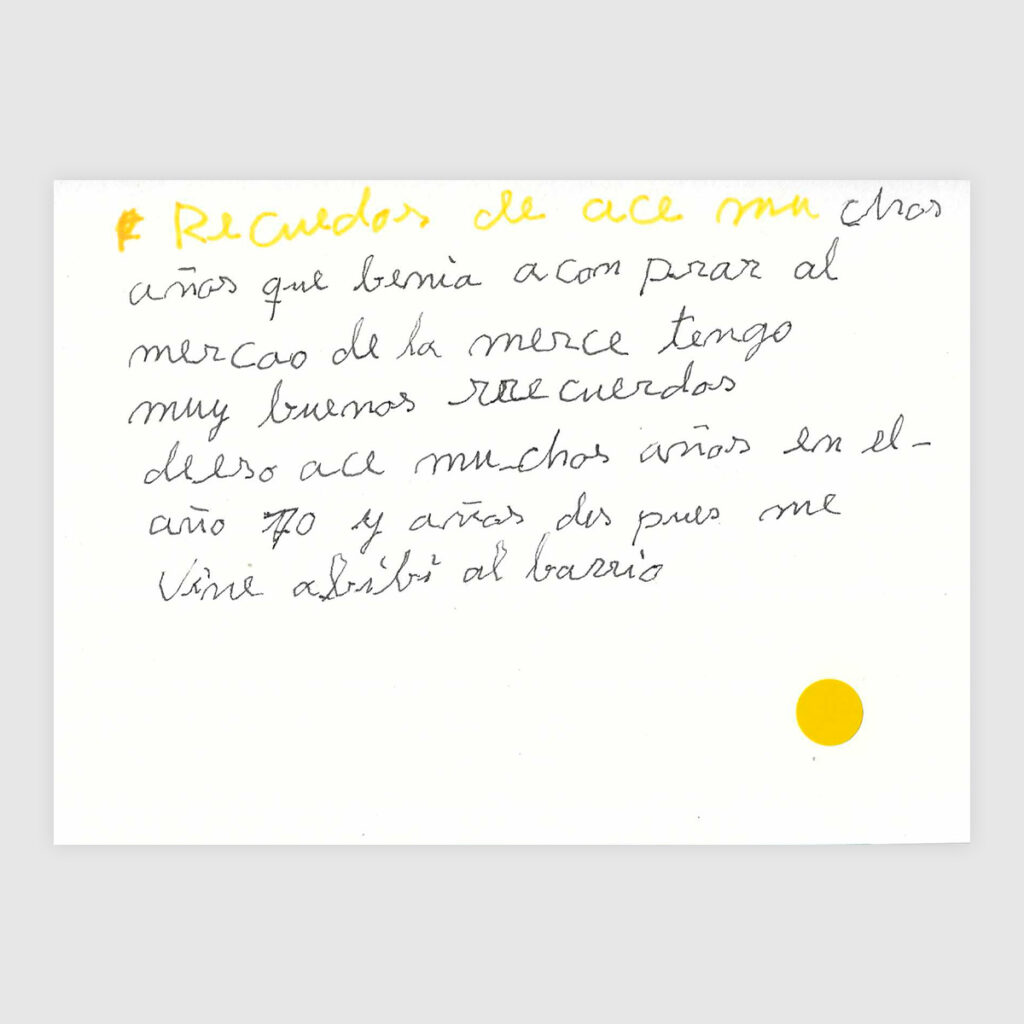 Recuedos de ace mu chos
años que benia acon prar al
mercao de la merce tengo
muy buenos rrecuerdos
deeso ace muchos años en el-
año 70 y años des pues me
Vine abibi al barrio